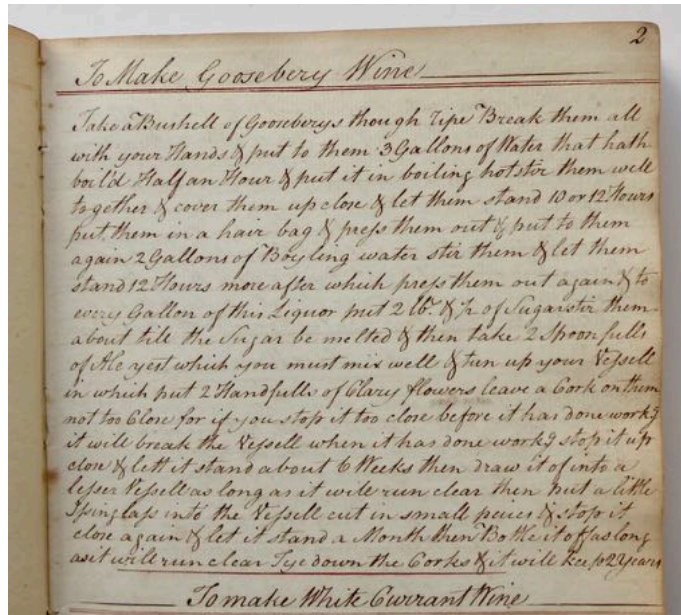 2
To Make Goosebery Wine
Take a Bushell of Gooseberys though ripe Break them all
with your Hands & put to them 3 Gallons of Water that hath
boil'd Half an Hour & put it in boiling hot stir them well
together & cover them up close & let them stand 10 or 12 Hours
put them in a hair bag & press them out & put to them
again 2 Gallons of Boyling water stir them & let them
stand 12 Hours more after which press them out again & to
every Gallon of this Liquor put 2 lb. & ½ of Sugar stir them
about till the Sugar be melted & then take 2 Spoonfulls
of Ale yest which you must mix well & tun up your Vessell
in which put 2 Handfulls of Clary flowers leave a Cork on them
not too Close for if you stop it too close before it has done work.g
it will break the Vessell when it has done work.g stop it up
close & lett it stand about 6 Weeks then draw it of into a
lesser Vessell as long as it will run clear then put a little
Ising lass into the Vessell cut in small peices & stop it
close again & let it stand a Month then Bottle it off as long
as it will run clear Tye down the Corks & it will keep 2 Years
To make White Currant Wine